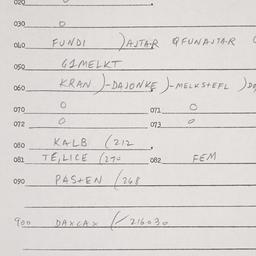 020
030 0
040 FUNDI )AJTAR QFUNAJTAR (
050 G1MELKT
060 KRAN )-DAJONKE )-MELKSTEFL )DO
070 0 071 0
072 0 073 0
080 KALB (212
081 TE,LICE (270 082 FEM
090 PASTEN (268
900 DAXCAX (/ 216030